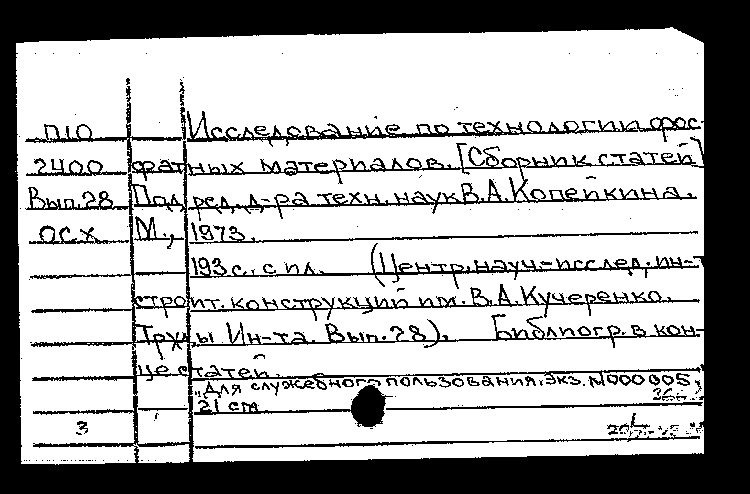 П10 Исследование по технологии фос-
2400 фатных материалов. [Сборник статей]
Вып.28 Под ред. д-ра техн. наук В.А.Копейкина.
ОСХ М., 1973.
193с. с ил. (Центр. науч-исслед. ин-т
строит. конструкций им. В.А.Кучеренко.
Труды Ин-та. Вып.28). Библиогр. в кон-
це статей.
"Для служебного пользования. Экз. №000005"
21 см
3